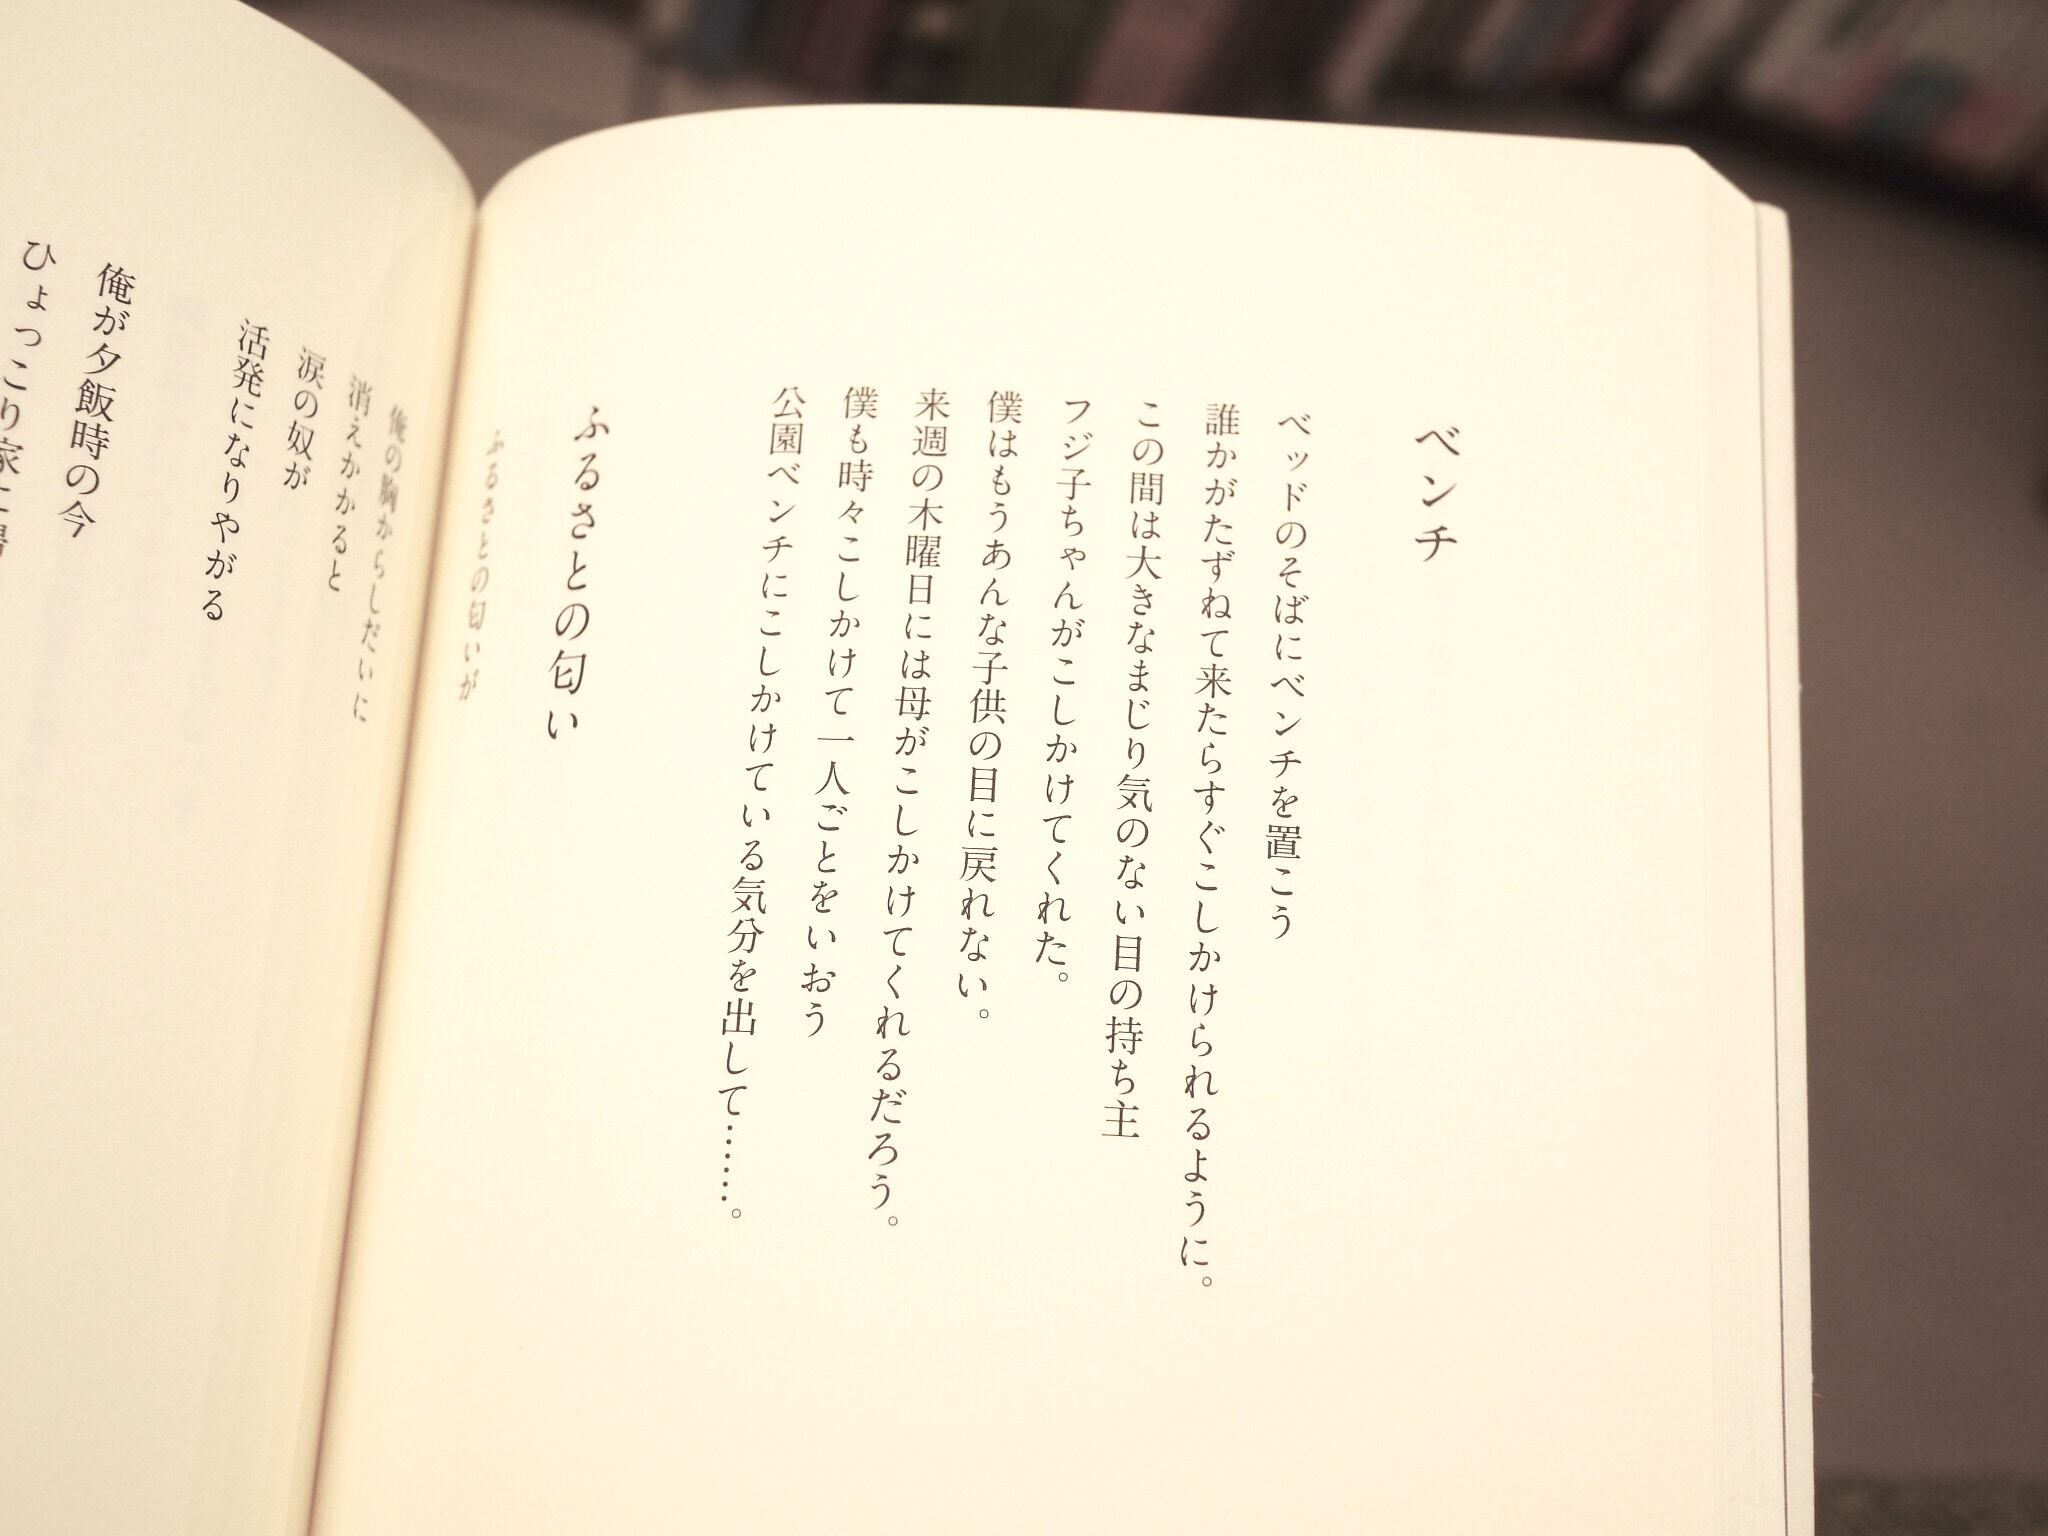 ベンチ
ベッドのそばにベンチを置こう
誰かがたずねて来たらすぐこしかけられるように。
この間は大きなまじり気のない目の持ち主
フジ子ちゃんがこしかけてくれた。
僕はもうあんな子供の目に戻れない。
来週の木曜日には母がこしかけてくれるだろう。
僕も時々こしかけて一人ごとをいおう
公園ベンチにこしかけている気分を出して……。
ふるさとの匂い
ふるさとの匂いが
俺の胸からしだいに
消えかかると
涙の奴が
活発になりやがる
俺が夕飯時の今
ひょっこり家に